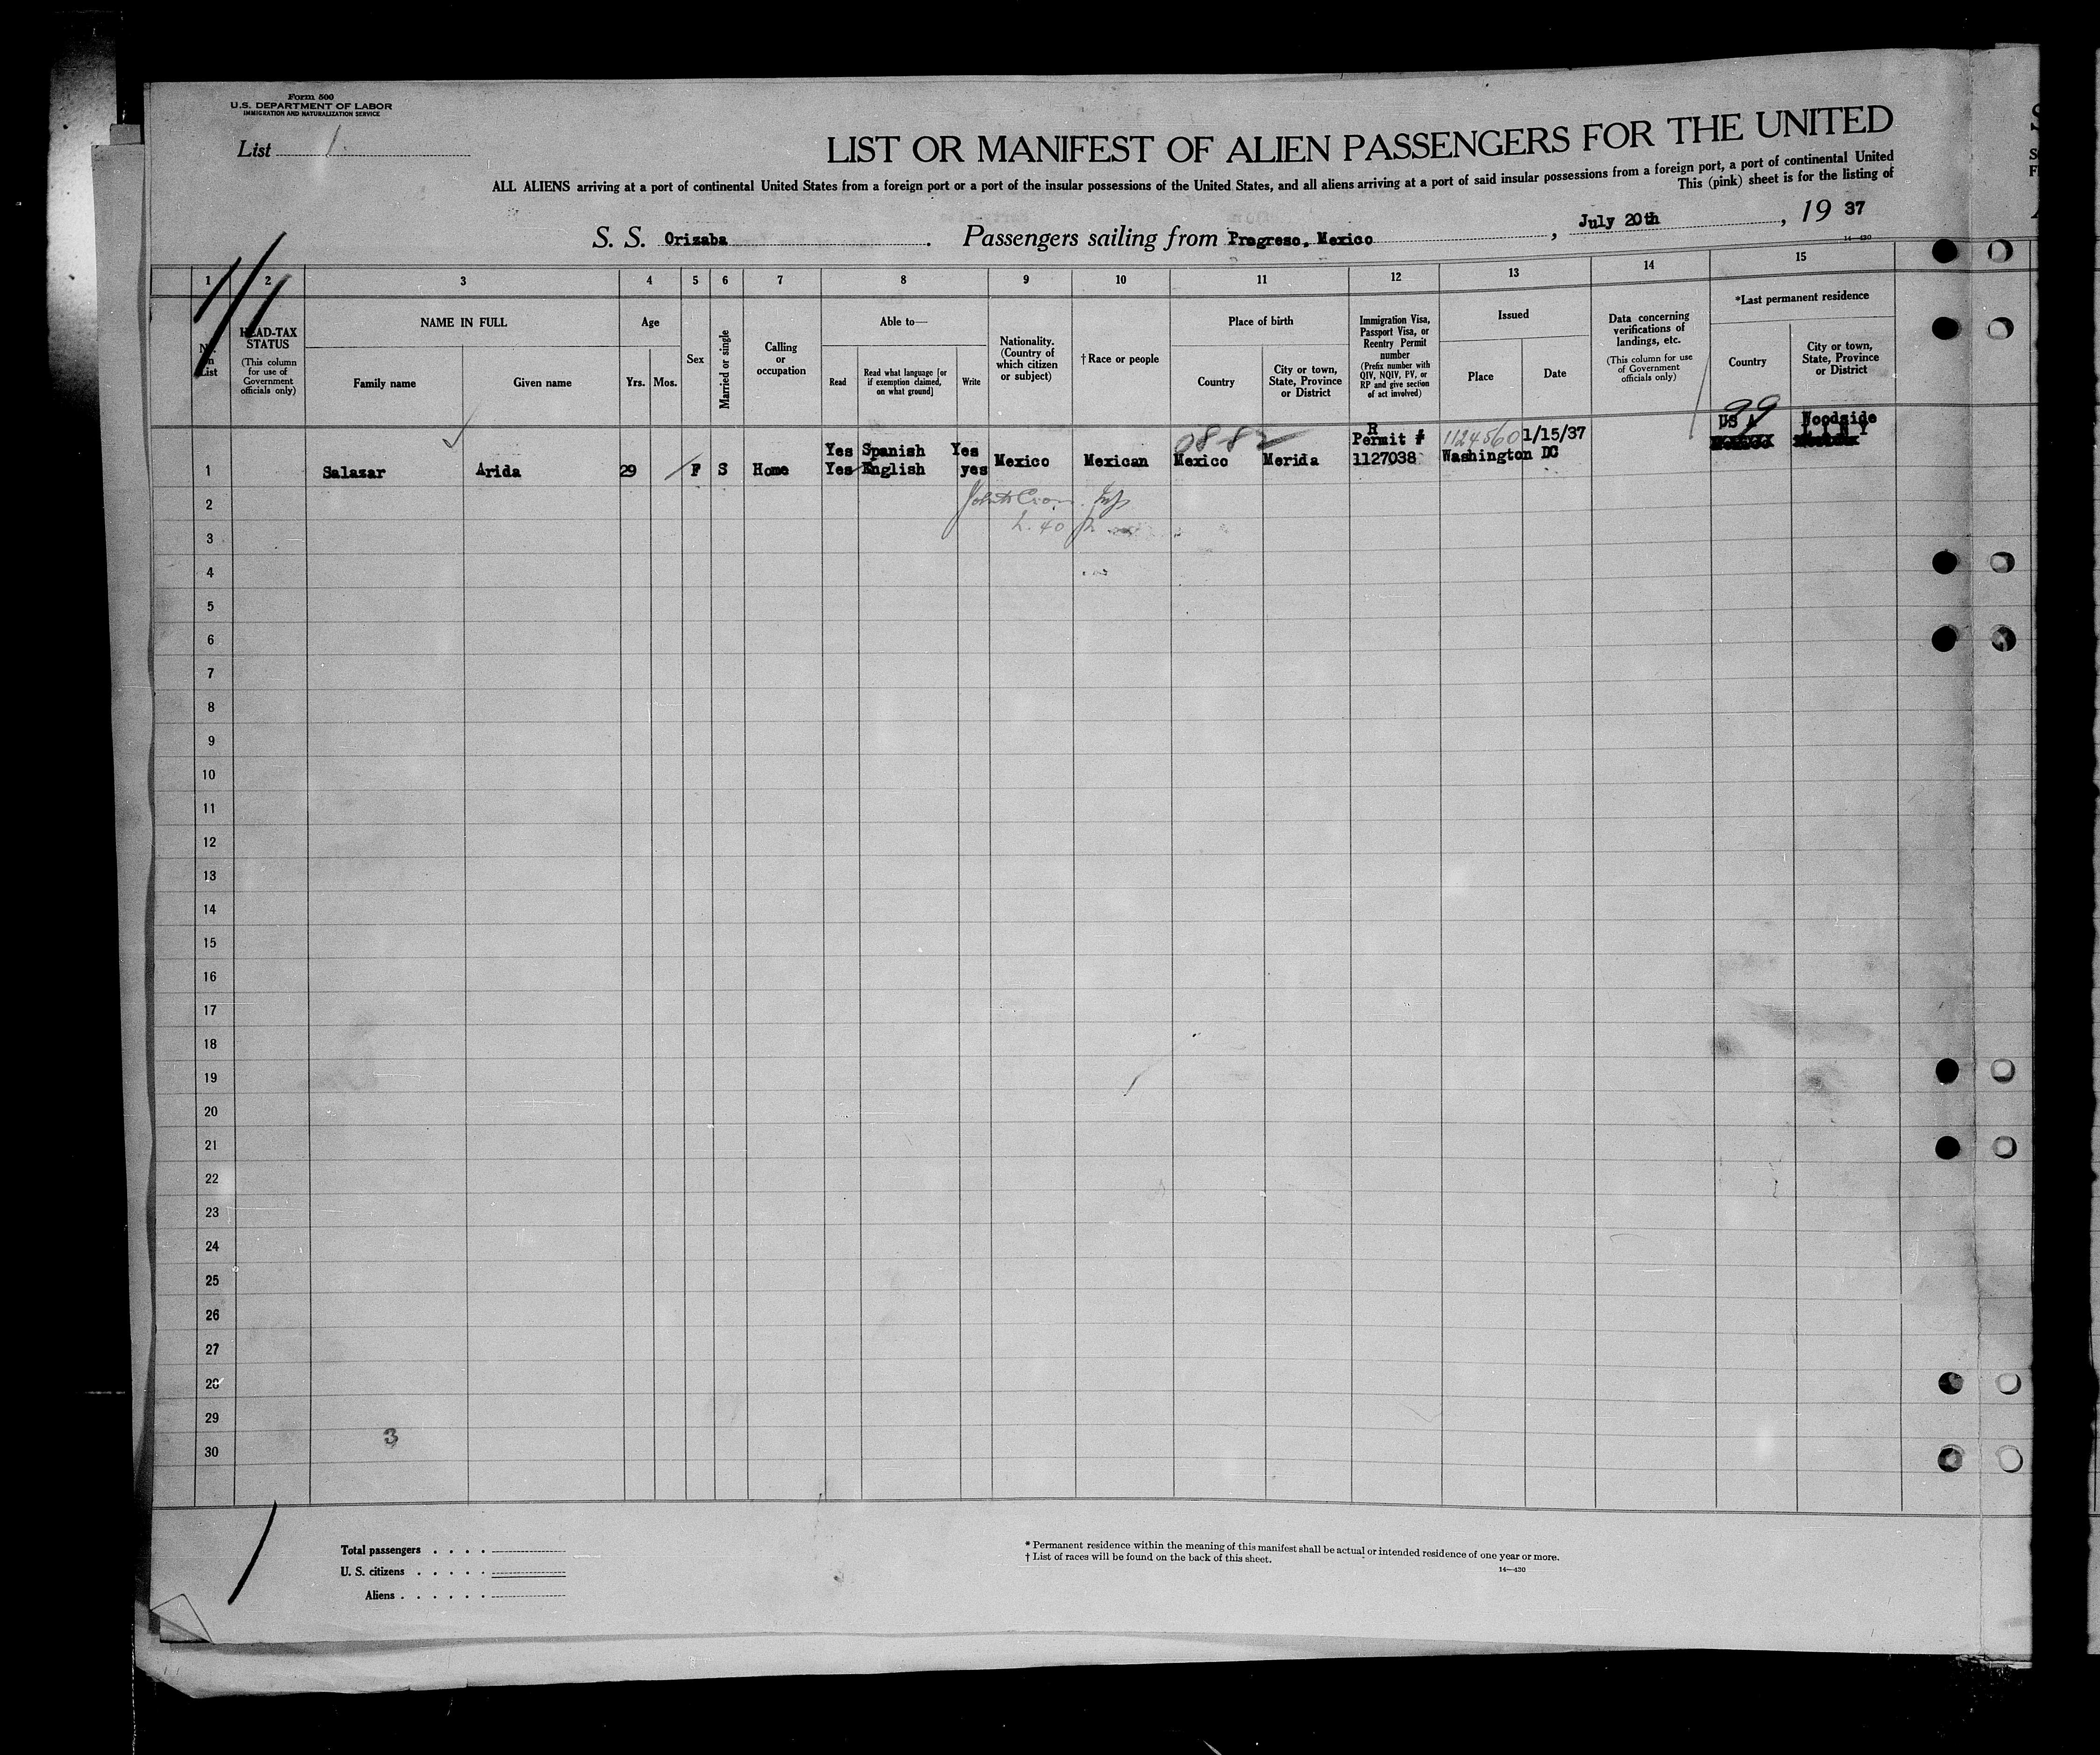 Form 500
U.S. DEPARTMENT OF LABOR
IMMIGRATION AND NATURALIZATION SERVICE
List 1
LIST OR MANIFEST OF ALIEN PASSENGERS FOR THE UNITED
ALL ALIENS arriving at a port of continental United States from a foreign port or a port of the insular possessions of the United States, and all aliens arriving at a port of said insular possessions from a foreign port, a port of continental United
This (pink) sheet is for the listing of
S. S. Orizaba. Passengers sailing from Progreso, Mexico, July 20th, 19 37
14—430
1 2 3 4 5 6 7 8 9 10 11 12 13 14 15
No. on List
HEAD-TAX STATUS
(This column for use of Government officials only)
NAME IN FULL
Family name
Given name
Age
Yrs. Mos.
Sex
Married or single
Calling or occupation
Able to—
Read
Read what language [or if exemption claimed, on what ground]
Write
Nationality. (Country of which citizen or subject)
†Race or people
Place of birth
Country
City or town, State, Province or District
Immigration Visa, Passport Visa, or Reentry Permit number
(Prefix number with QIV, NQIV, PV, or RP and give section of act involved)
Issued
Place
Date
Data concerning verifications of landings, etc.
(This column for use of Government officials only)
*Last permanent residence
Country
City or town, State, Province or District
99
0882
Yes Spanish Yes R Permit # 1124560 1/15/37 US A Woodside L I N Y
1 Salazar Arida 29 F S Home Yes English yes Mexico Mexican Mexico Merida 1127038 Washington DC
2
3
4
5
6
7
8
9
10
11
12
13
14
15
16
17
18
19
20
21
22
23
24
25
26
27
28
29
3
30
Total passengers
U. S. citizens
Aliens
* Permanent residence within the meaning of this manifest shall be actual or intended residence of one year or more.
† List of races will be found on the back of this sheet.
14—430